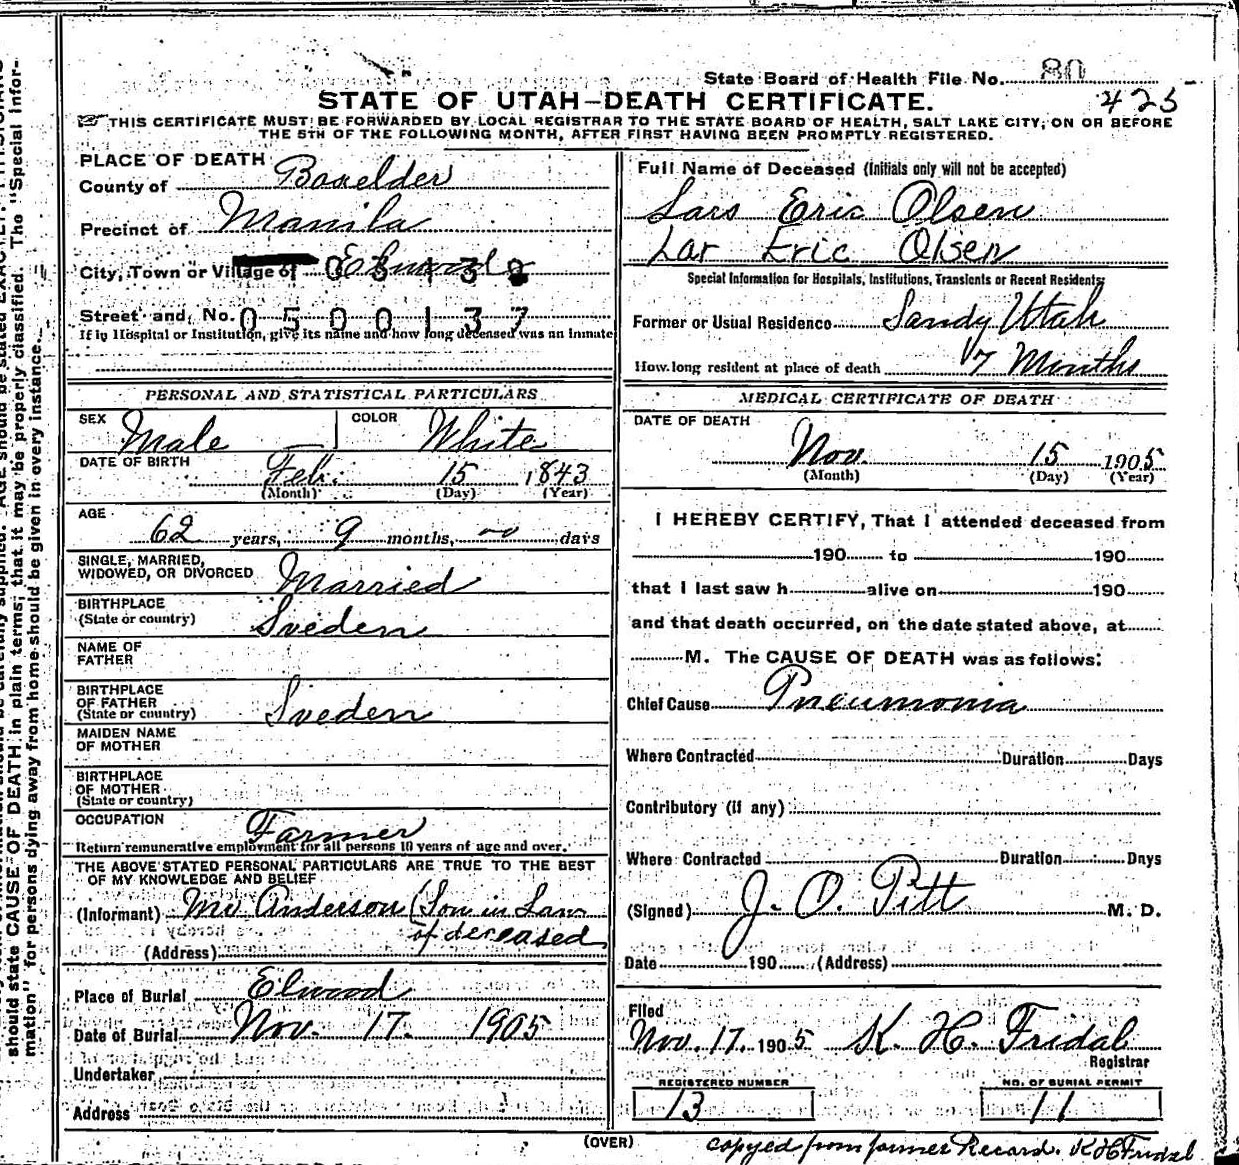 State Board of Health File No. 80
425
STATE OF UTAH—DEATH CERTIFICATE.
THIS CERTIFICATE MUST BE FORWARDED BY LOCAL REGISTRAR TO THE STATE BOARD OF HEALTH, SALT LAKE CITY, ON OR BEFORE
THE 5TH OF THE FOLLOWING MONTH, AFTER FIRST HAVING BEEN PROMPTLY REGISTERED.
PLACE OF DEATH
County of Boxelder
Precinct of Manila
City, Town or Village of Elwood
Street and No. 0500137
If in Hospital or Institution, give its name and how long deceased was an inmate
PERSONAL AND STATISTICAL PARTICULARS
SEX Male COLOR White
DATE OF BIRTH
Feb. 15 1843
(Month) (Day) (Year)
AGE
62 years, 9 months, — days
SINGLE, MARRIED,
WIDOWED, OR DIVORCED Married
BIRTHPLACE
(State or country) Sveden
NAME OF
FATHER
BIRTHPLACE
OF FATHER
(State or country) Sveden
MAIDEN NAME
OF MOTHER
BIRTHPLACE
OF MOTHER
(State or country)
OCCUPATION Farmer
Return remunerative employment for all persons 10 years of age and over.
THE ABOVE STATED PERSONAL PARTICULARS ARE TRUE TO THE BEST
OF MY KNOWLEDGE AND BELIEF
(Informant) Anderson (Son in Law
of deceased
(Address)
Place of Burial Elwood
Date of Burial Nov. 17. 1905
Undertaker
Address
Full Name of Deceased (Initials only will not be accepted)
Lars Eric Olsen
Lar Eric Olsen
Special Information for Hospitals, Institutions, Transients or Recent Residents:
Former or Usual Residence Sandy Utah
How long resident at place of death 17 Months
MEDICAL CERTIFICATE OF DEATH
DATE OF DEATH
Nov. 15 1905
(Month) (Day) (Year)
I HEREBY CERTIFY, That I attended deceased from
190 to 190
that I last saw h alive on 190
and that death occurred, on the date stated above, at
M. The CAUSE OF DEATH was as follows:
Chief Cause Pneumonia
Where Contracted Duration Days
Contributory (if any)
Where Contracted Duration Days
(Signed) J. O. Pitt M. D.
Date 190 (Address)
Filed
Nov. 17. 1905 K. H. Fridal
Registrar
REGISTERED NUMBER NO. OF BURIAL PERMIT
13 11
(OVER)
copyed from former Record. K H Fridal
should state CAUSE OF DEATH in plain terms, that it may be properly classified. The "Special Infor-
mation" for persons dying away from home should be given in every instance.